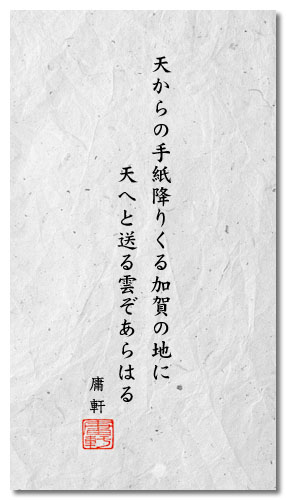 天からの手紙降りくる加賀の地に
天へと送る雲ぞあらはる
庸軒